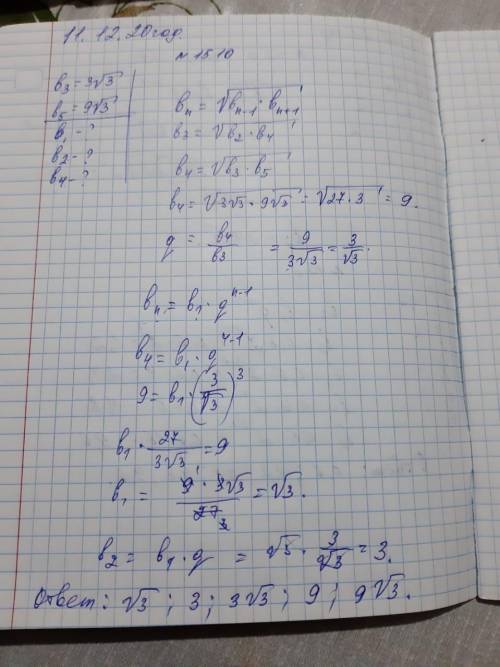 11. 12. 20 год.
№ 1510
b₃ = 3√3
b₅ = 9√3
b₁ - ?
b₂ - ?
b₄ - ?
bₙ = √(bₙ₋₁ · bₙ₊₁)
b₃ = √(b₂ · b₄)
b₄ = √(b₃ · b₅)
b₄ = √(3√3 · 9√3) = √(27 · 3) = 9.
q = b₄/b₃ = 9/(3√3) = 3/√3.
bₙ = b₁ · qⁿ⁻¹
b₄ = b₁ · q⁴⁻¹
9 = b₁ · (3/√3)³
b₁ · 27/(3√3) = 9
b₁ = (9 · 3√3)/27 = √3.
b₂ = b₁ · q = √3 · 3/√3 = 3.
Ответ: √3 ; 3 ; 3√3 ; 9 ; 9√3.